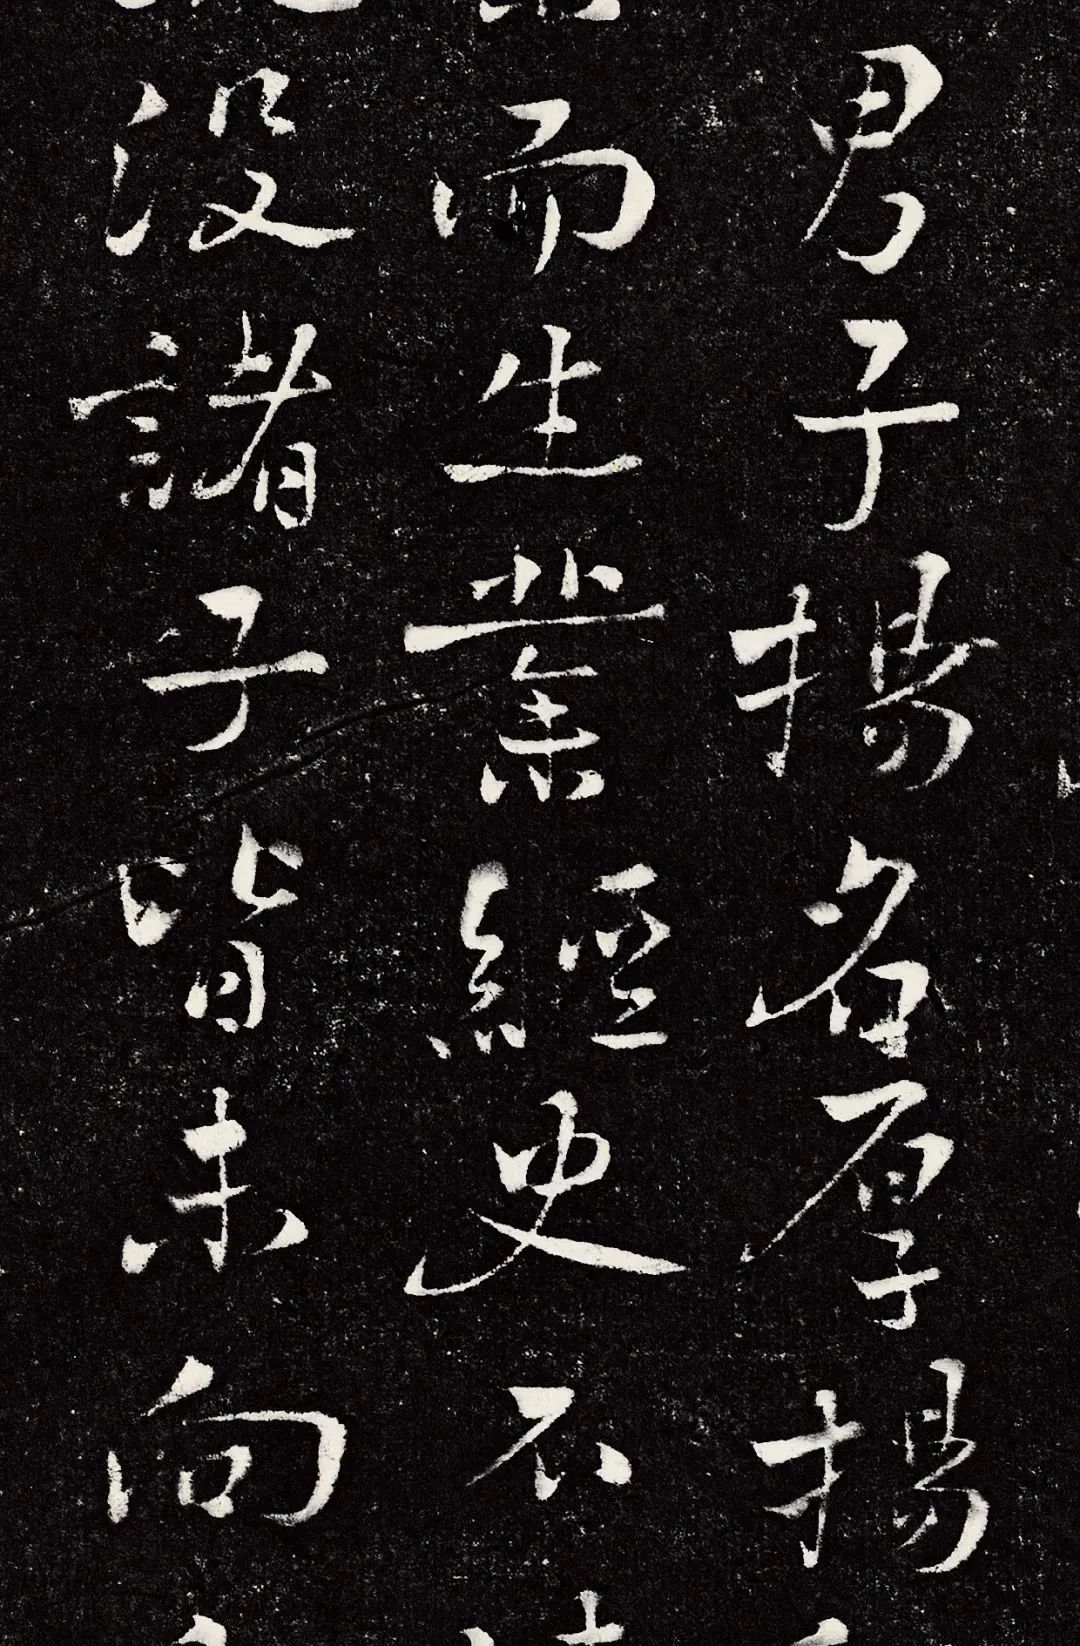 男子揚名厚揚
而生業經史不
没諸子皆未向